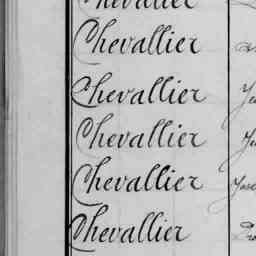 Chevallier
Chevallier
Chevallier
Chevallier
Chevallier
Chevallier